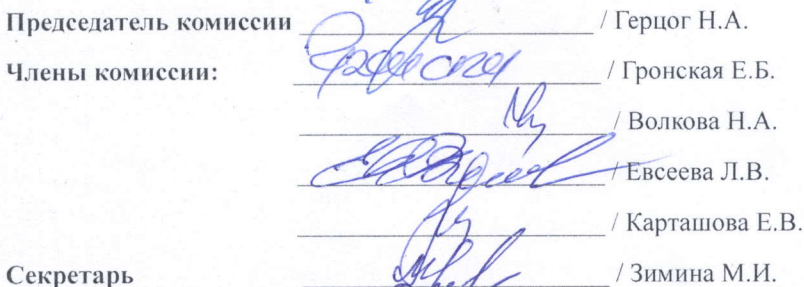 Председатель комиссии / Герцог Н.А.
Члены комиссии: / Гронская Е.Б.
/ Волкова Н.А.
/ Евсеева Л.В.
/ Карташова Е.В.
Секретарь / Зимина М.И.